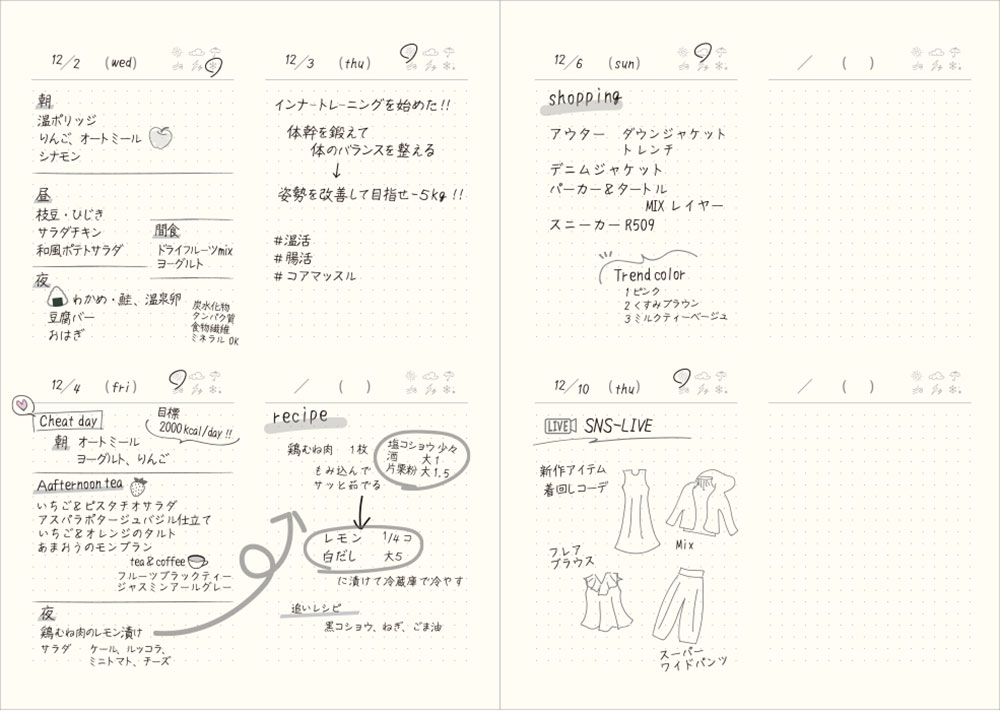 12/2 (wed)
朝
温ポリッジ
りんご、オートミール
シナモン
昼
枝豆・ひじき
サラダチキン
和風ポテトサラダ
間食
ドライフルーツmix
ヨーグルト
夜
わかめ・鮭、温泉卵
豆腐バー
おはぎ
炭水化物
タンパク質
食物繊維
ミネラル OK
12/3 (thu)
インナートレーニングを始めた!!
体幹を鍛えて
体のバランスを整える
↓
姿勢を改善して目指せ-5kg!!
#温活
#腸活
#コアマッスル
12/4 (fri)
Cheat day
目標
2000kcal/day!!
朝 オートミール
ヨーグルト、りんご
Aafternoon tea
いちご&ピスタチオサラダ
アスパラポタージュバジル仕立て
いちご&オレンジのタルト
あまおうのモンブラン
tea&coffee
フルーツブラックティー
ジャスミンアールグレー
夜
鶏むね肉のレモン漬け
サラダ ケール、ルッコラ、
ミニトマト、チーズ
/ ( )
recipe
鶏むね肉 1枚
塩コショウ 少々
酒 大1
片栗粉 大1.5
もみ込んで
サッと茹でる
レモン 1/4コ
白だし 大5
に漬けて冷蔵庫で冷やす
追いレシピ
黒コショウ、ねぎ、ごま油
12/6 (sun)
shopping
アウター ダウンジャケット
トレンチ
デニムジャケット
パーカー&タートル
MIX レイヤー
スニーカー R509
Trend color
1 ピンク
2 くすみブラウン
3 ミルクティーベージュ
/ ( )
12/10 (thu)
LIVE SNS-LIVE
新作アイテム
着回しコーデ
Mix
フレア
ブラウス
スーパー
ワイドパンツ
/ ( )